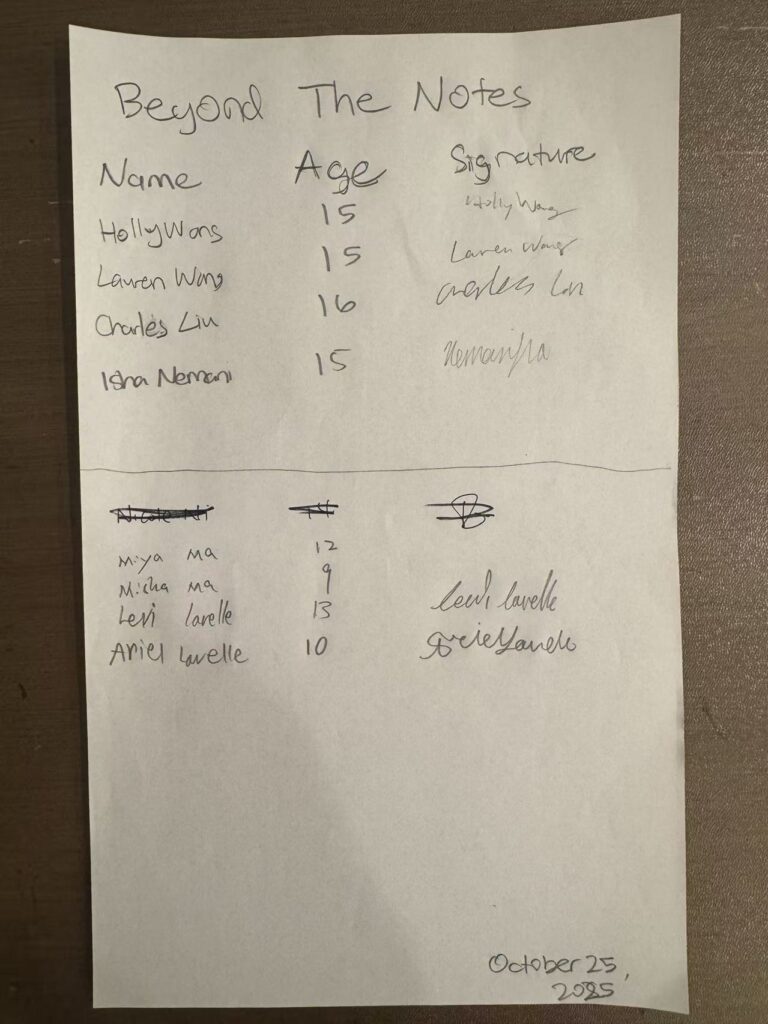 Beyond The Notes
Name Age Signature
Holly Wong 15 Holly Wong
Lauren Wong 15 Lauren Wong
Charles Liu 16 Charles Liu
Isha Nemani 15
Miya Ma 12
Misha Ma 9
Levi Lavelle 13 Levi Lavelle
Ariel Lavelle 10 Ariel Lavelle
October 25,
2025